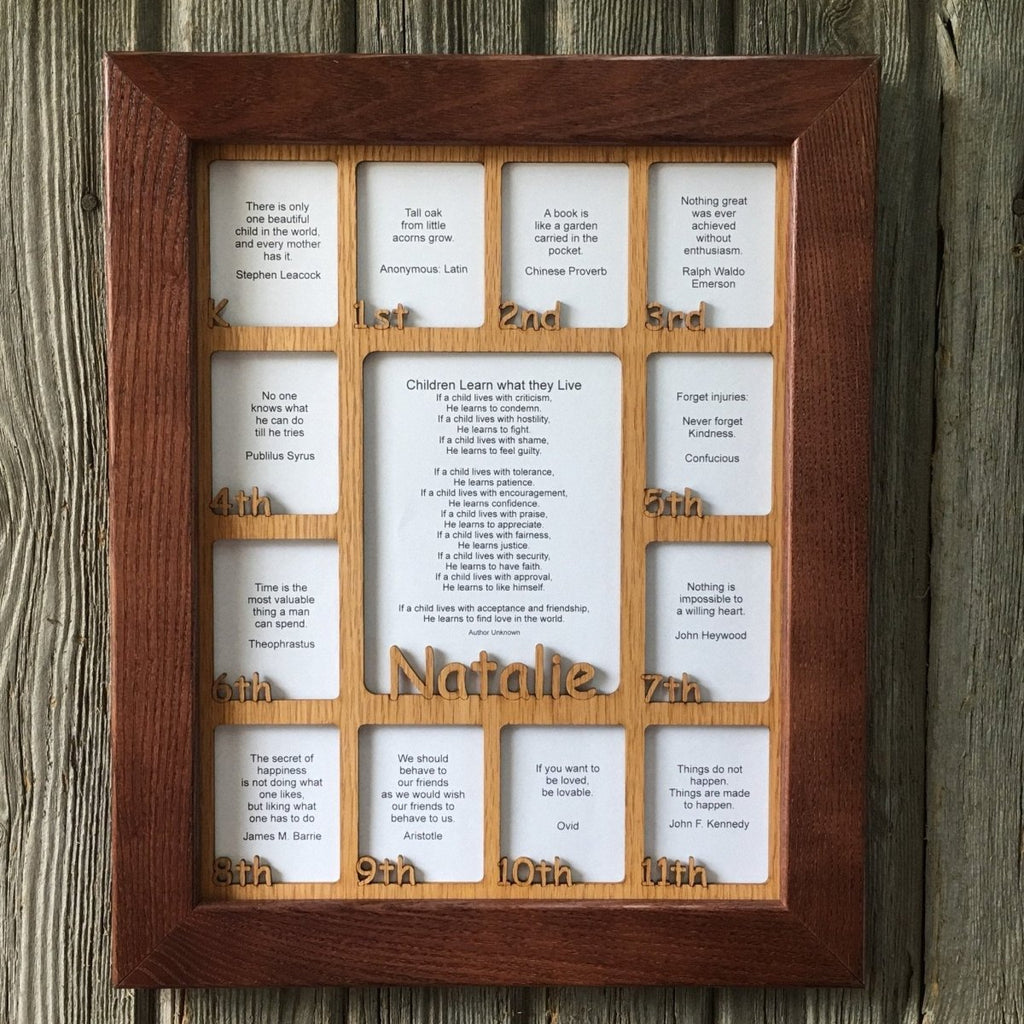 There is only
one beautiful
child in the world,
and every mother
has it.
Stephen Leacock
K
Tall oak
from little
acorns grow.
Anonymous: Latin
1st
A book is
like a garden
carried in the
pocket.
Chinese Proverb
2nd
Nothing great
was ever
achieved
without
enthusiasm.
Ralph Waldo
Emerson
3rd
No one
knows what
he can do
till he tries
Publilus Syrus
4th
Children Learn what they Live
If a child lives with criticism,
He learns to condemn.
If a child lives with hostility,
He learns to fight.
If a child lives with shame,
He learns to feel guilty.
If a child lives with tolerance,
He learns patience.
If a child lives with encouragement,
He learns confidence.
If a child lives with praise,
He learns to appreciate.
If a child lives with fairness,
He learns justice.
If a child lives with security,
He learns to have faith.
If a child lives with approval,
He learns to like himself.
If a child lives with acceptance and friendship,
He learns to find love in the world.
Author Unknown
Natalie
Forget injuries:
Never forget
Kindness.
Confucious
5th
Time is the
most valuable
thing a man
can spend.
Theophrastus
6th
Nothing is
impossible to
a willing heart.
John Heywood
7th
The secret of
happiness
is not doing what
one likes,
but liking what
one has to do
James M. Barrie
8th
We should
behave to
our friends
as we would wish
our friends to
behave to us.
Aristotle
9th
If you want to
be loved,
be lovable.
Ovid
10th
Things do not
happen.
Things are made
to happen.
John F. Kennedy
11th